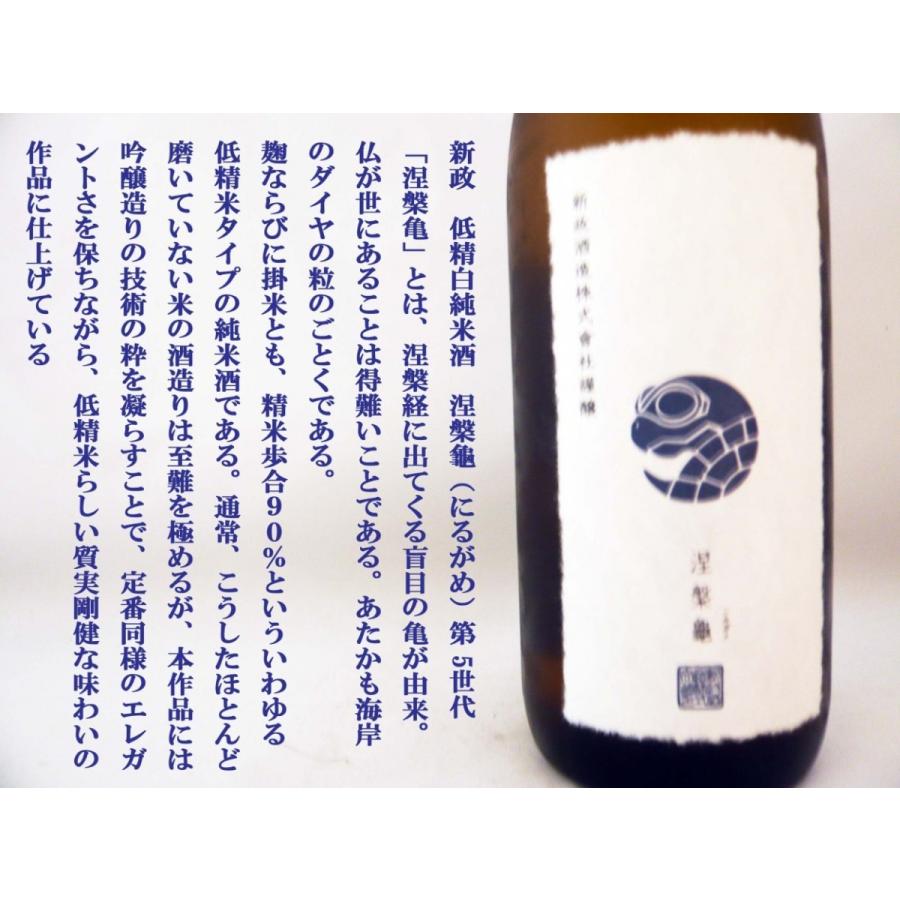 新政　低精白純米酒　涅槃龜（にるがめ）第5世代
「涅槃亀」とは、涅槃経に出てくる盲目の亀が由来。
仏が世にあることは得難いことである。あたかも海岸
のダイヤの粒のごとくである。
麹ならびに掛米とも、精米歩合90%といういわゆる
低精米タイプの純米酒である。通常、こうしたほとんど
磨いていない米の酒造りは至難を極めるが、本作品には
吟醸造りの技術の粋を凝らすことで、定番同様のエレガ
ントさを保ちながら、低精米らしい質実剛健な味わいの
作品に仕上げている
新政酒造株式會社謹醸
涅槃龜